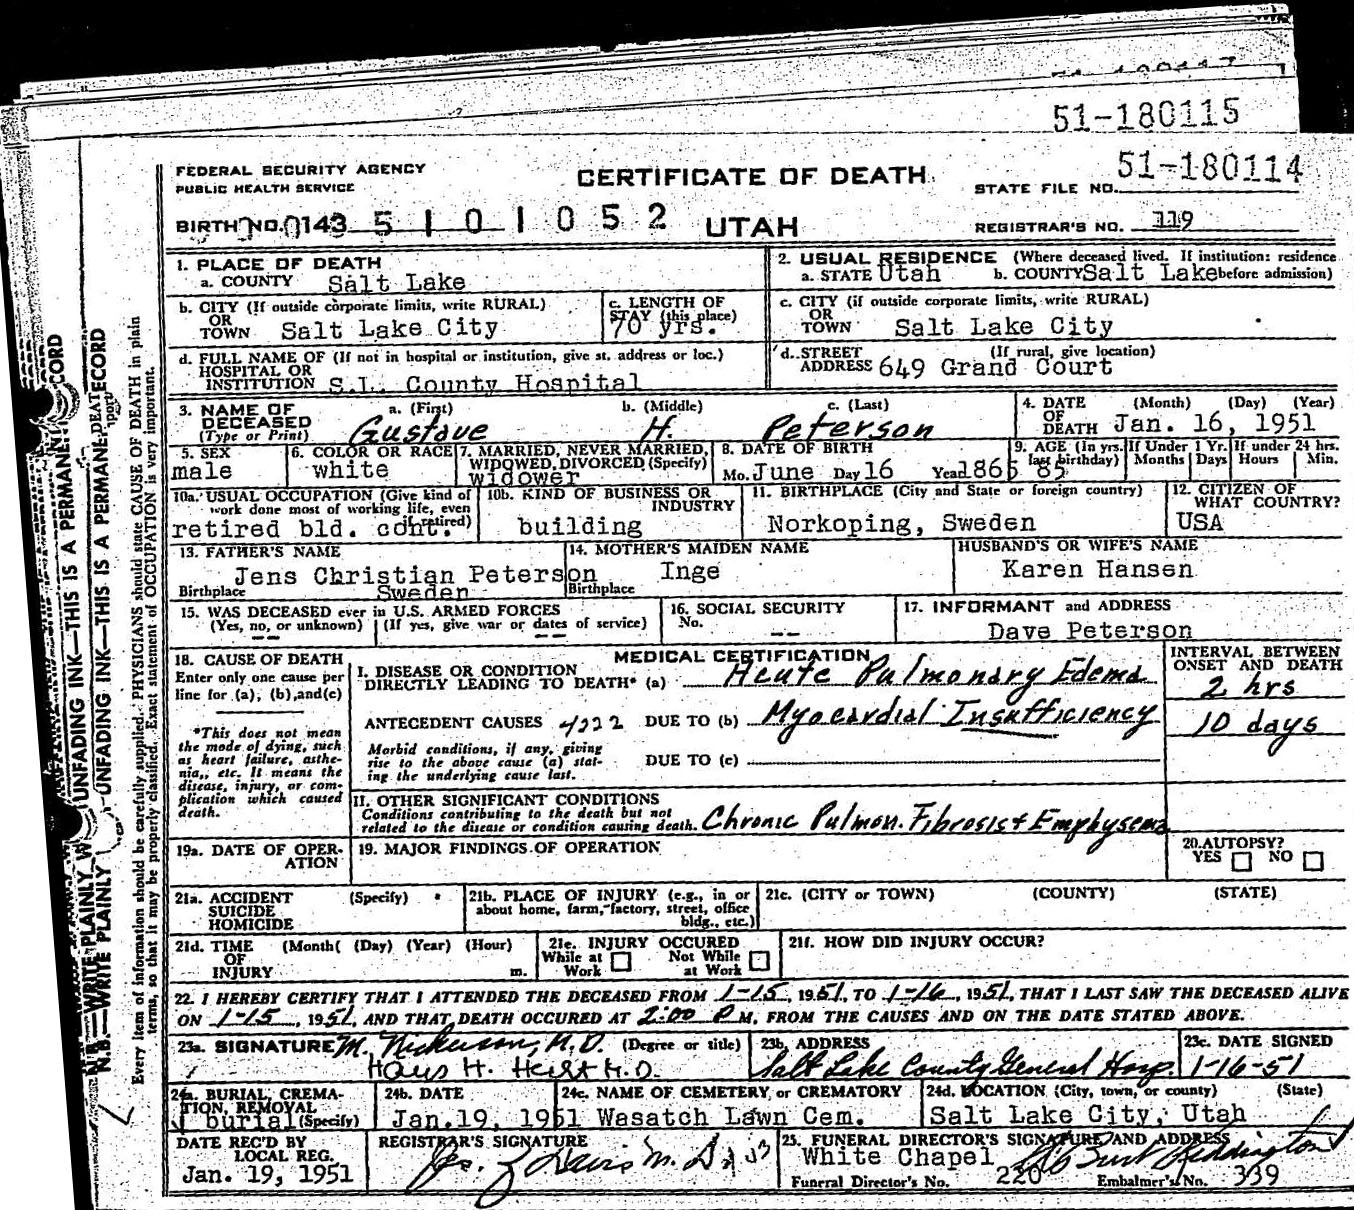 51-180115
FEDERAL SECURITY AGENCY
PUBLIC HEALTH SERVICE
CERTIFICATE OF DEATH
STATE FILE NO. 51-180114
BIRTH NO. 0143 5 1 0 1 0 5 2 UTAH
REGISTRAR'S NO. 119
1. PLACE OF DEATH
a. COUNTY Salt Lake
2. USUAL RESIDENCE (Where deceased lived. If institution: residence before admission)
a. STATE Utah b. COUNTY Salt Lake
b. CITY (If outside corporate limits, write RURAL) OR TOWN Salt Lake City
c. LENGTH OF STAY (this place) 70 yrs.
c. CITY (if outside corporate limits, write RURAL) OR TOWN Salt Lake City
d. FULL NAME OF (If not in hospital or institution, give st. address or loc.) HOSPITAL OR INSTITUTION S.L. County Hospital
d. STREET ADDRESS (If rural, give location) 649 Grand Court
3. NAME OF DECEASED (Type or Print)
a. (First) Gustave b. (Middle) H. c. (Last) Peterson
4. DATE OF DEATH (Month) (Day) (Year) Jan. 16, 1951
5. SEX male
6. COLOR OR RACE white
7. MARRIED, NEVER MARRIED, WIDOWED, DIVORCED (Specify) widower
8. DATE OF BIRTH Mo. June Day 16 Year 1865
9. AGE (In yrs. last birthday) 85
If Under 1 Yr. Months Days
If under 24 hrs. Hours Min.
10a. USUAL OCCUPATION (Give kind of work done most of working life, even if retired) retired bld. cont.
10b. KIND OF BUSINESS OR INDUSTRY building
11. BIRTHPLACE (City and State or foreign country) Norkoping, Sweden
12. CITIZEN OF WHAT COUNTRY? USA
13. FATHER'S NAME Jens Christian Peterson
Birthplace Sweden
14. MOTHER'S MAIDEN NAME Inge
Birthplace
HUSBAND'S OR WIFE'S NAME Karen Hansen
15. WAS DECEASED ever in U.S. ARMED FORCES
(Yes, no, or unknown) -- (If yes, give war or dates of service) --
16. SOCIAL SECURITY No. --
17. INFORMANT and ADDRESS Dave Peterson
18. CAUSE OF DEATH
Enter only one cause per line for (a), (b), and (c)
*This does not mean the mode of dying, such as heart failure, asthenia,, etc. It means the disease, injury, or complication which caused death.
MEDICAL CERTIFICATION
INTERVAL BETWEEN ONSET AND DEATH
I. DISEASE OR CONDITION DIRECTLY LEADING TO DEATH* (a) Acute Pulmonary Edema 2 hrs
ANTECEDENT CAUSES 4222 DUE TO (b) Myocardial Insufficiency 10 days
Morbid conditions, if any, giving rise to the above cause (a) stating the underlying cause last.
DUE TO (c)
II. OTHER SIGNIFICANT CONDITIONS
Conditions contributing to the death but not related to the disease or condition causing death. Chronic Pulmon. Fibrosis + Emphysema
19a. DATE OF OPERATION
19. MAJOR FINDINGS OF OPERATION
20. AUTOPSY? YES NO
21a. ACCIDENT SUICIDE HOMICIDE (Specify)
21b. PLACE OF INJURY (e.g., in or about home, farm, factory, street, office bldg., etc.)
21c. (CITY or TOWN) (COUNTY) (STATE)
21d. TIME OF INJURY (Month( (Day) (Year) (Hour) m.
21e. INJURY OCCURED While at Work Not While at Work
21f. HOW DID INJURY OCCUR?
22. I HEREBY CERTIFY THAT I ATTENDED THE DECEASED FROM 1-15, 1951, TO 1-16, 1951, THAT I LAST SAW THE DECEASED ALIVE
ON 1-15, 1951, AND THAT DEATH OCCURED AT 2:00 P M, FROM THE CAUSES AND ON THE DATE STATED ABOVE.
23a. SIGNATURE M. Nickerson, M.D. (Degree or title)
Hans H. Hecht M.D.
23b. ADDRESS Salt Lake County General Hosp.
23c. DATE SIGNED 1-16-51
24a. BURIAL, CREMATION, REMOVAL (Specify) burial
24b. DATE Jan. 19, 1951
24c. NAME OF CEMETERY or CREMATORY Wasatch Lawn Cem.
24d. LOCATION (City, town, or county) (State) Salt Lake City, Utah
DATE REC'D BY LOCAL REG. Jan. 19, 1951
REGISTRAR'S SIGNATURE
25. FUNERAL DIRECTOR'S SIGNATURE AND ADDRESS White Chapel
Funeral Director's No. 220 Embalmer's No. 339
N.B.—WRITE PLAINLY WITH UNFADING INK—THIS IS A PERMANENT RECORD
Every item of information should be carefully supplied. PHYSICIANS should state CAUSE OF DEATH in plain
terms, so that it may be properly classified. Exact statement of OCCUPATION is very important.